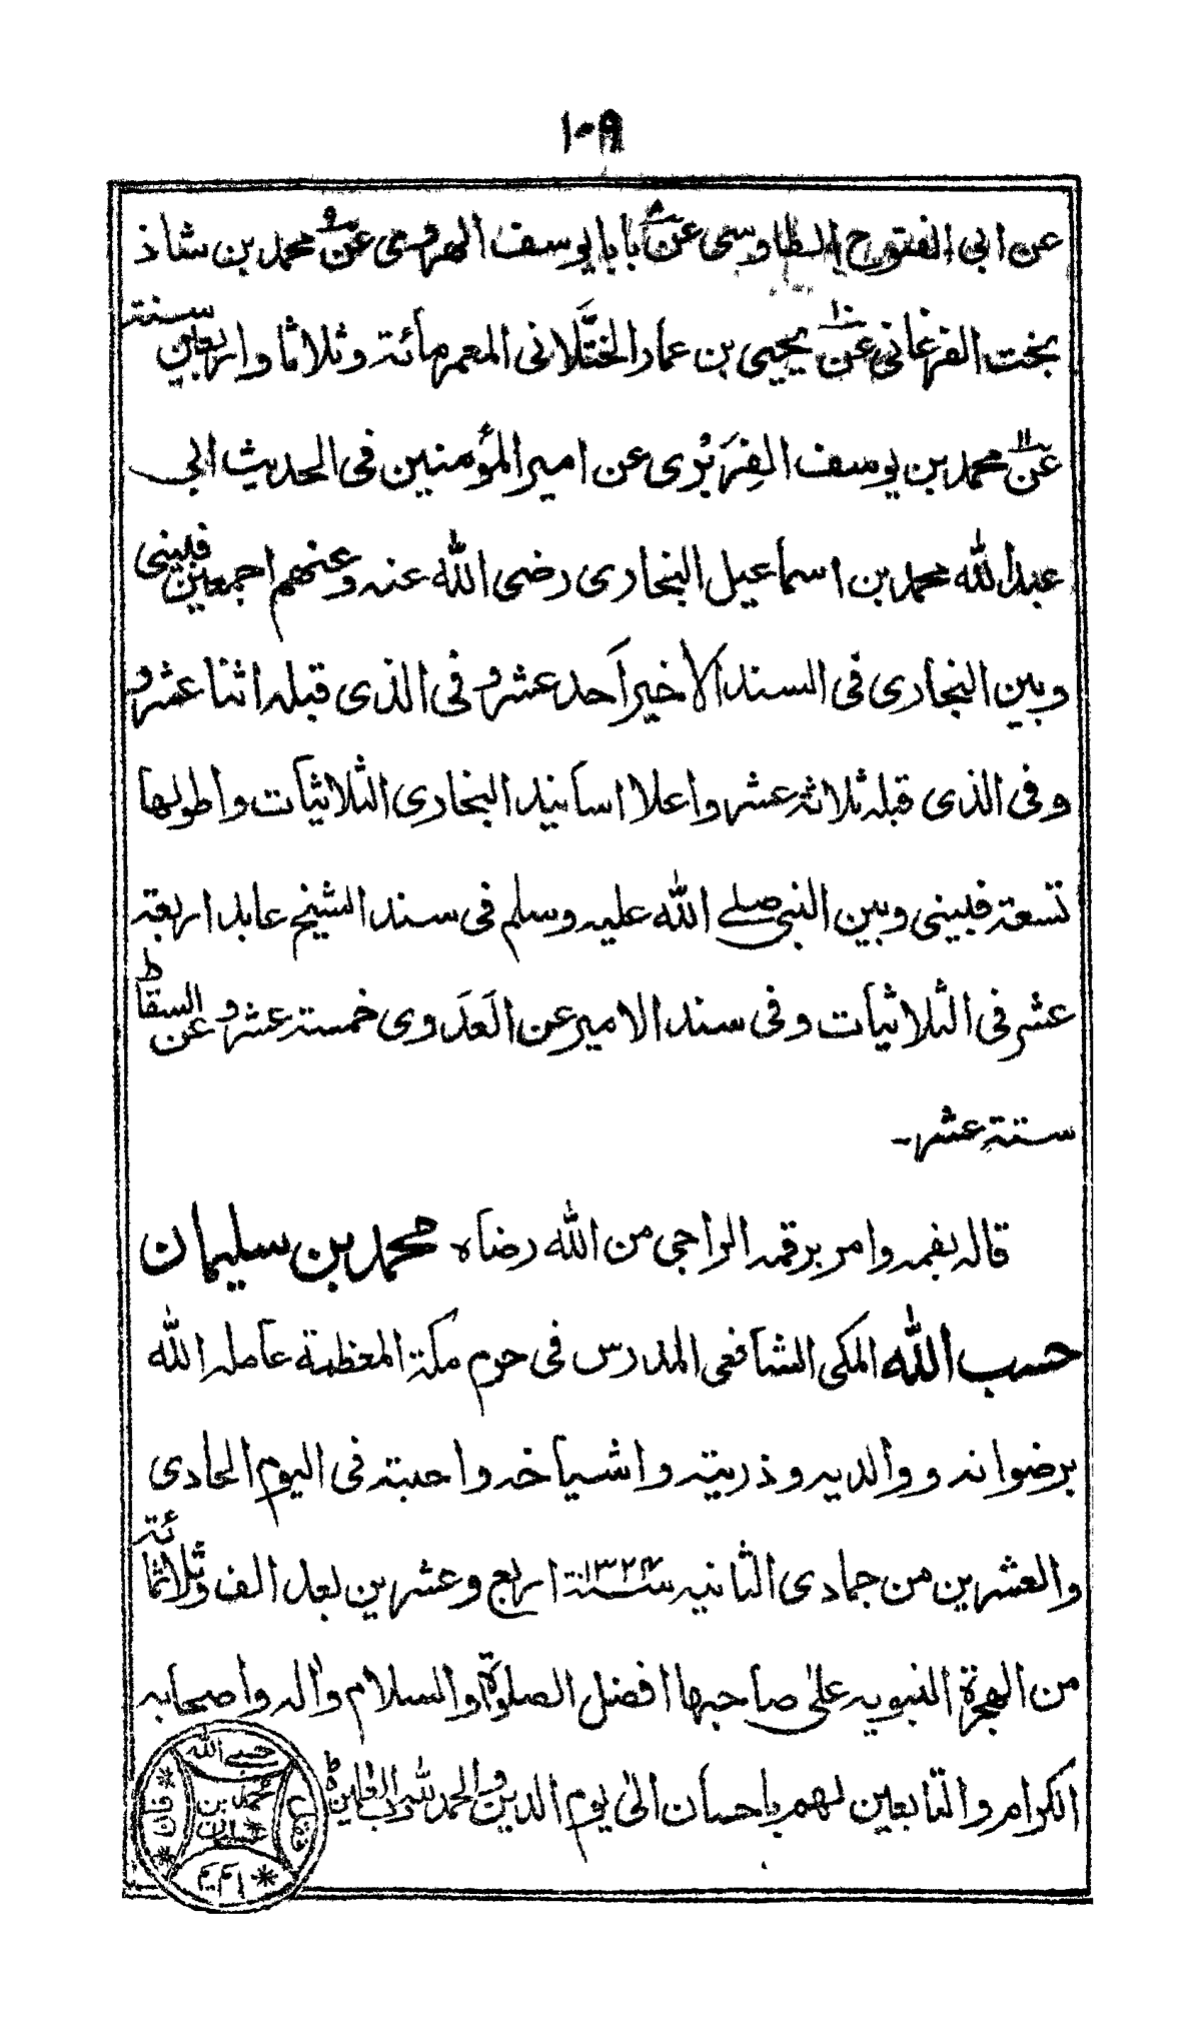 ١٠٩
عن ابى الفتوح الطاوسى عن٨ بابا يوسف الهروى عن٩ محمد بن شاذ
بخت الفرغانى عن١٠ يحيى بن عمار الختَّلانى المعمر مأئة وثلاثا واربعين سنة
عن١١ محمد بن يوسف الفِرَبْرى عن امير المؤمنين فى الحديث ابى
عبد الله محمد بن اسماعيل البخارى رضى الله عنه وعنهم اجمعين فبينى
وبين البخارى فى السند الاخير اَحد عشر و فى الذى قبله اثنا عشر و
وفى الذى قبله ثلاثة عشر واعلا اسانيد البخارى الثلاثيات واطولها
تسعة فبينى وبين النبى صلے الله عليه وسلم فى سند الشيخ عابد اربعة
عشر فى الثلاثيات وفى سند الامير عن العَدَوى خمسة عشر و عن السقاط
ستة عشر۔
قاله بفمه وامر برقمه الراجى من الله رضاه محمد بن سليمان
حسب الله المكى الشافعى المدرس فى حرم مكة المعظمة عامله الله
برضوانه ووالديه وذريته واشياخه واحبته فى اليوم الحادى
والعشرين من جمادى الثانيه سنة ١٣٢۴ اربع وعشرين بعد الف وثلاثمائة
من الهجرة النبويه علىٰ صاحبها افضل الصلوٰة والسلام واٰله واصحابه
الكرام والتابعين لهم باحسان الىٰ يوم الدين والحمد لله رب العٰلمين
حسب الله
محمد بن
سليمان